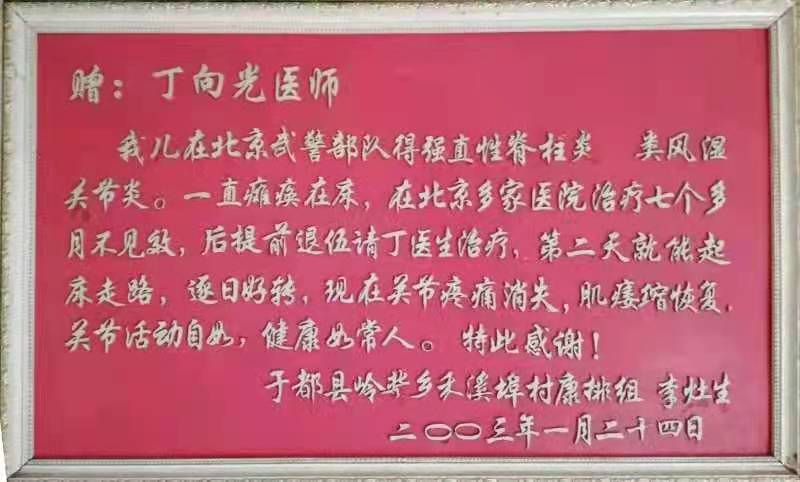 赠：丁向光医师
我儿在北京武警部队得强直性脊柱炎 类风湿
关节炎。一直瘫痪在床，在北京多家医院治疗七个多
月不见效，后提前退伍请丁医生治疗，第二天就能起
床走路，逐日好转，现在关节疼痛消失，肌痿缩恢复，
关节活动自如，健康如常人。特此感谢！
于都县岭背乡禾溪埠村康排组 李灶生
二〇〇三年一月二十四日